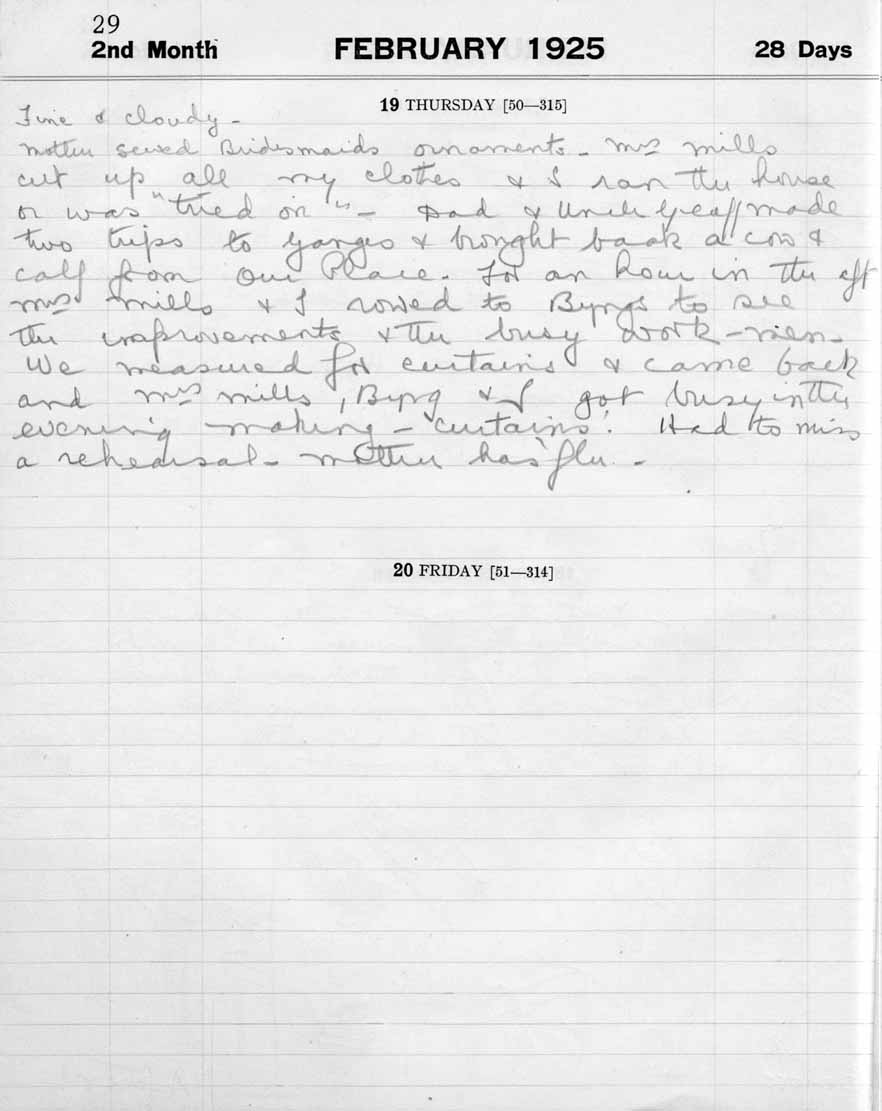 29
2nd Month FEBRUARY 1925 28 Days
19 THURSDAY [50—315]
Fine & cloudy -
Mother sewed Bridesmaids ornaments - Mrs Mills
cut up all my clothes & I ran the house
or was "tried on" - Dad & Uncle Geoff made
two trips to Ganges & brought back a cow &
calf from Our Place. For an hour in the aft
Mrs Mills & I rowed to Byngs to see
the improvements & the busy work-men -
We measured for curtains & came back
and Mrs Mills, Byng & I got busy in the
evening making - curtains. Had to miss
a rehearsal - Mother has 'flu. -
20 FRIDAY [51—314]